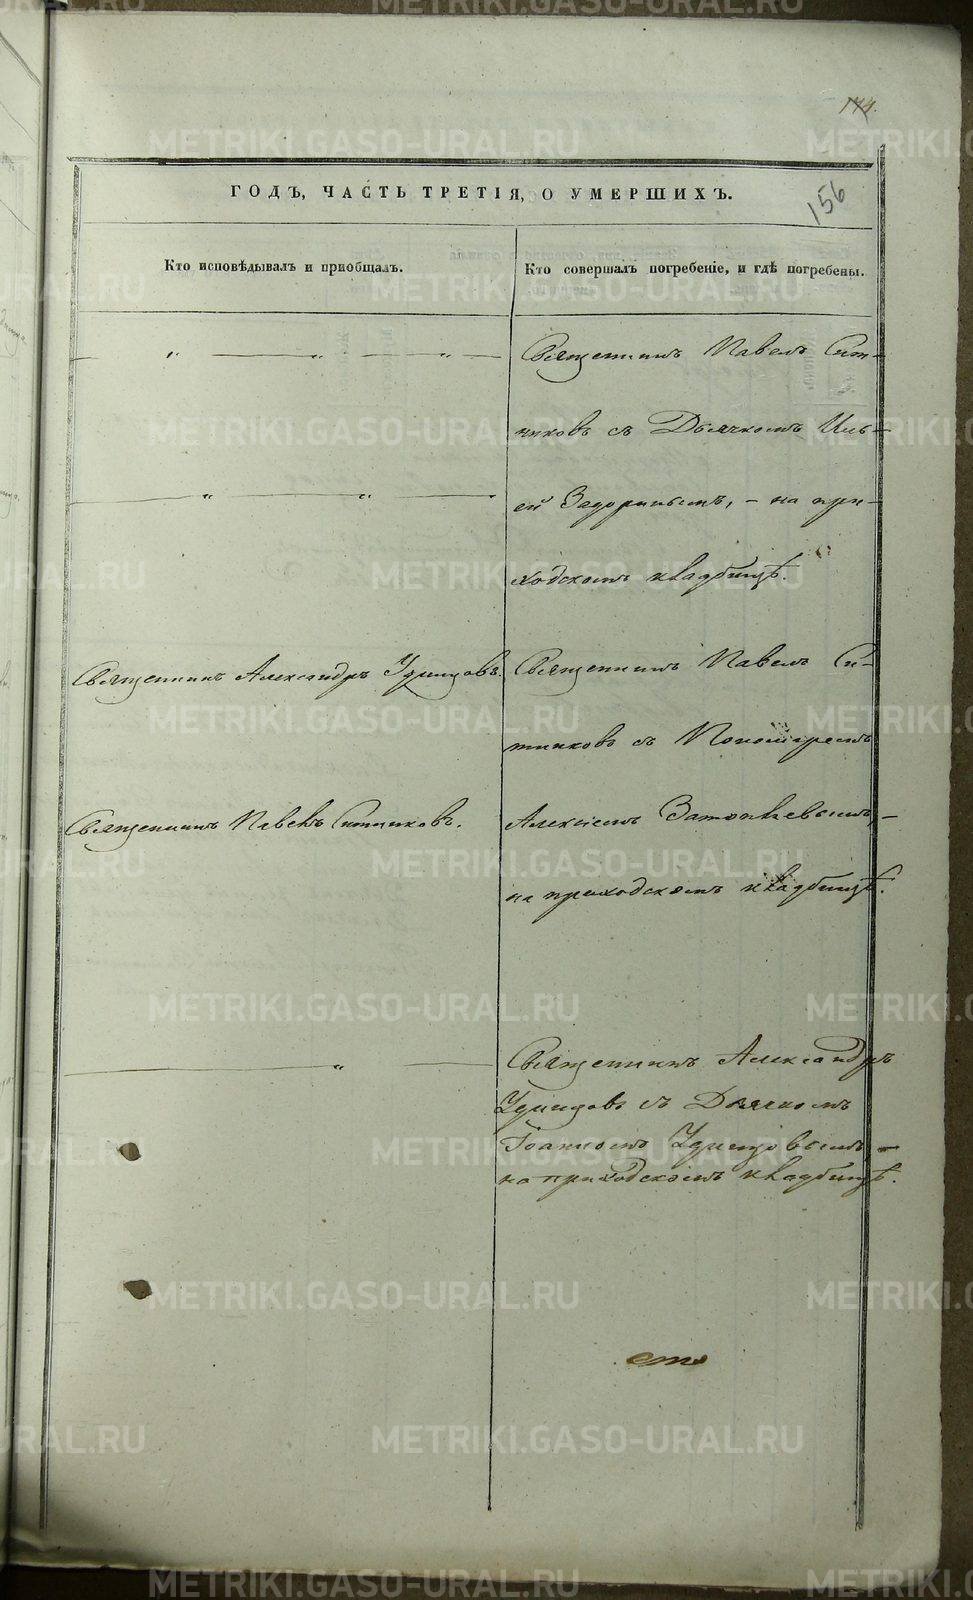 144.
156
ГОДЪ, ЧАСТЬ ТРЕТІЯ, О УМЕРШИХЪ.
Кто исповѣдывалъ и пріобщалъ.
Кто совершалъ погребеніе, и гдѣ погребены.
Священникъ Павелъ Сит-
никовъ съ Дьячкомъ Иль-
ей Задоринымъ, - на при-
ходскомъ кладбищѣ.
Священникъ Александръ Удинцовъ.
Священникъ Павелъ Си-
тниковъ съ Пономаремъ
Священникъ Павелъ Ситниковъ.
Алексіемъ -
на приходскомъ кладбищѣ.
Священникъ Александръ
Удинцовъ съ Дьячкомъ
Іоанномъ Удинцовымъ, -
на приходскомъ кладбищѣ.
сто
METRIKI.GASO-URAL.RU